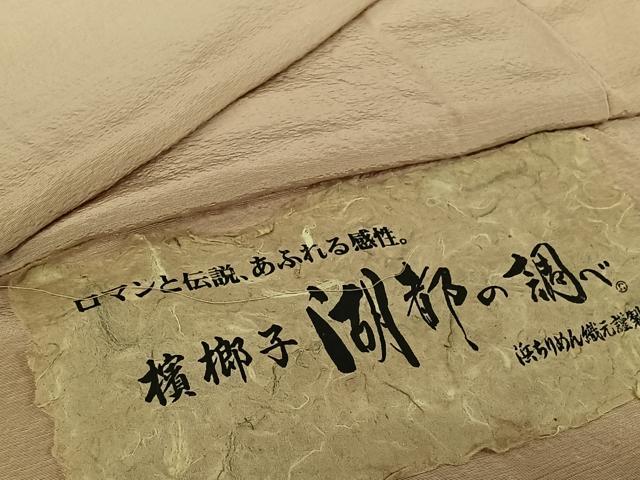 ロマンと伝説、あふれる感性。
檳榔子 湖都の調べ®
浜ちりめん織元謹製